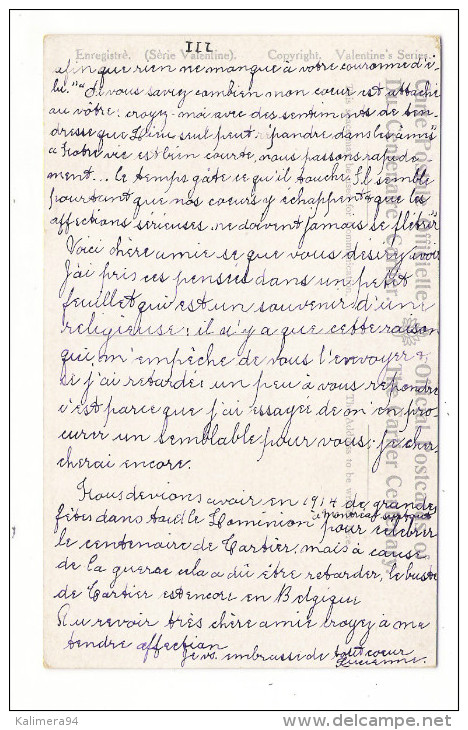 III
Enregistré. (Série Valentine). Copyright. Valentine's Series.
afin que rien ne manque à votre couronne d'é-
lu." "Si vous savez combien mon coeur est attaché
au vôtre: croyez-moi avec des sentiments de ten-
dresse que Dieu seul peut répandre dans les âmes"
"Notre vie est bien courte, nous passons rapide
ment... le temps gâte ce qu'il touche Il semble
pourtant que nos coeurs y échappent & que les
affections sérieuses ne doivent jamais se flétrir"
Voici chère amie se que vous désirez avoir
J'ai pris ces pensées dans un petit
feuillet qui est un souvenir d'une
religieuse: il n'y a que cette raison
qui m'empêche de vous l'envoyer &
se j'ai retardée un peu à vous répondre
c'est parce que j'ai essayer de m'en pro-
curer un semblable pour vous; je cher-
cherai encore.
Nous devions avoir en 1914 de grandes
fêtes dans tout le Dominion à Montréal surtout pour célébrer
le centenaire de Cartier, mais à cause
de la guerre cela a dû être retarder, le buste
de Cartier est encore en Belgique
Au revoir très chère amie croyez à ma
tendre affection
Je vs. embrasse de tout coeur
Lucienne.
Carte Postale Officielle Official Postcard of
Du Centenaire Cartier The Cartier Centenary
Kalimera94